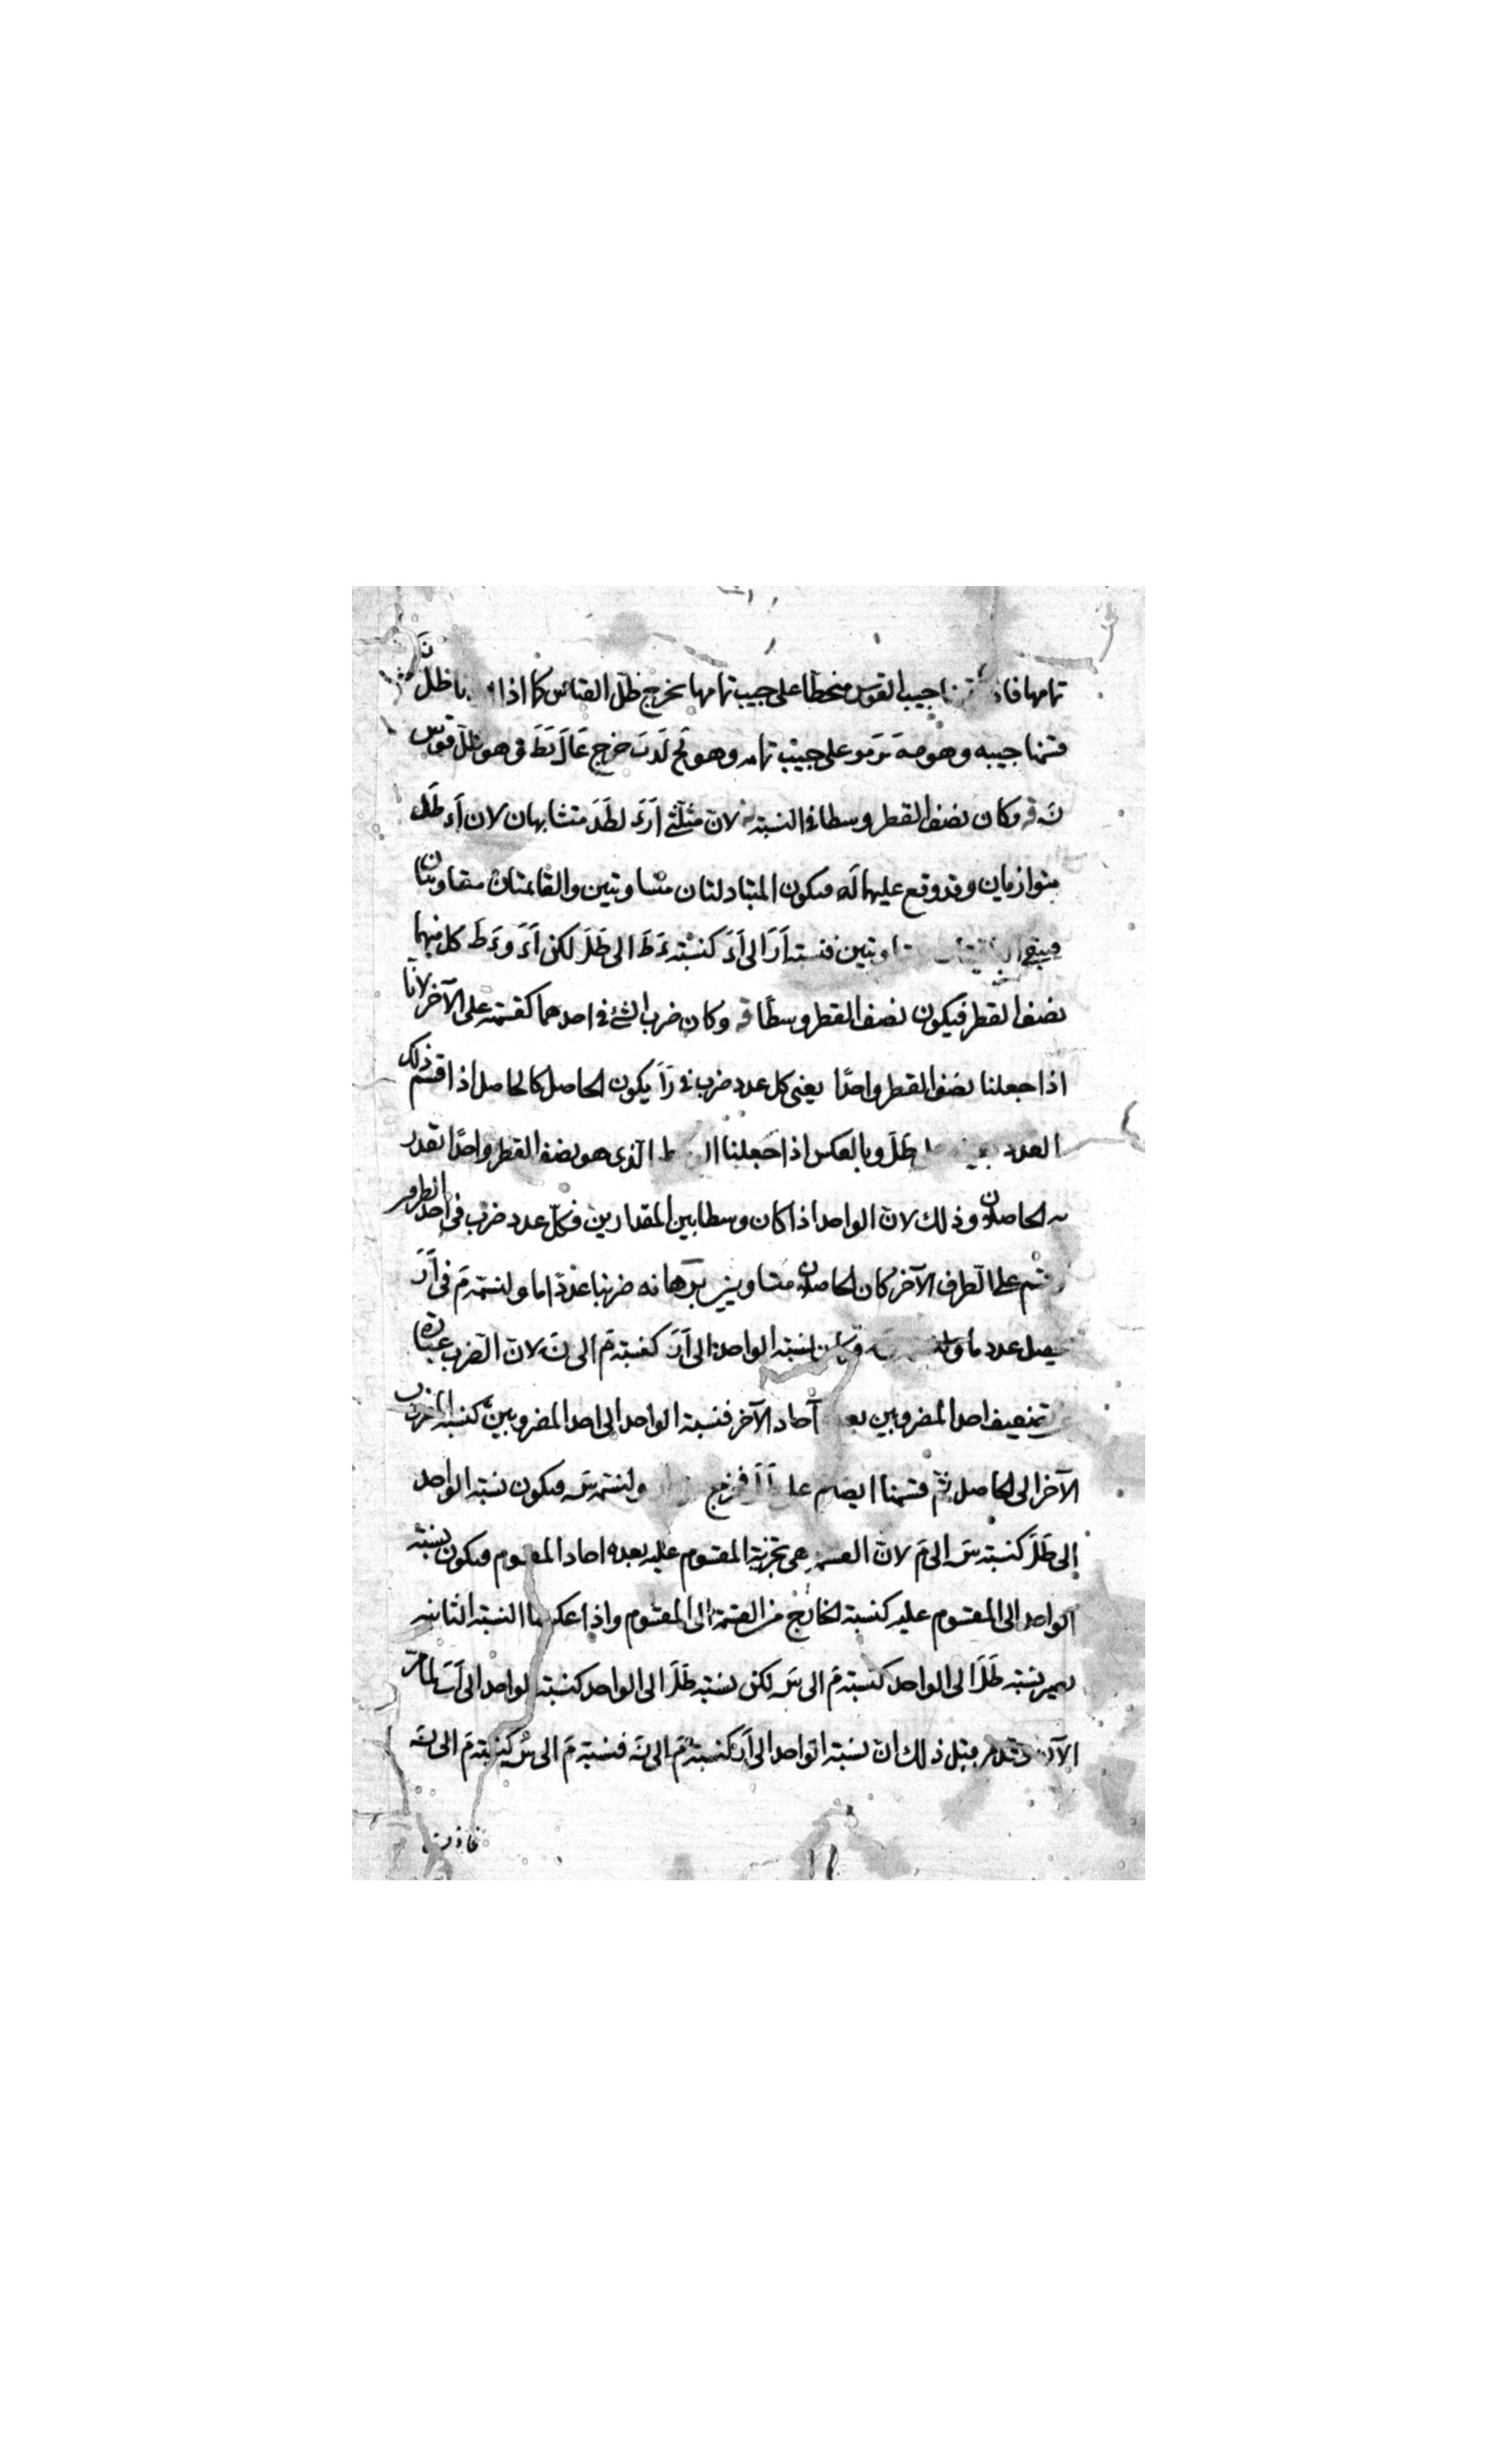 تمامها فاذا قسمنا جيب القوس منحطا على جيب تمامها يخرج ظل القياس كما اذا ظل نَ
قسمنا جيبه وهو مه على جيب تمامه وهو لح خرج في هو ظل قوس
نَ ق وكان نصف القطر وسطا في النسبة لان مثلثي اَرَءَ لطَدَ متشابهان لان اَءَ طَلَ
متوازيان وقد وقع عليهما لَه فيكون المتبادلتان متساويتين والقائمتان متساويتان
فيبقى متساويتين فنسبة اَرَ الى اَءَ كنسبة ءَطَ الى طَلَ لكن اَءَ وءَطَ كل منهما
نصف القطر فيكون نصف القطر وسطا ق وكان ضرب الشئ في احدهما كقسمته على الآخر لانا
اذا جعلنا نصف القطر واحدا يعني كل عدد ضرب في رَاَ يكون الحاصل كالحاصل اذا قسم ذلك
العدد بعينه على طَلَ وبالعكس اذا جعلنا الذي هو نصف القطر واحدا
الحاصلان وذلك لان الواحد اذا كان وسطا بين المقدارين فكل عدد ضرب في احد الطرفين
وقسم على الطرف الآخر كان الحاصلان متساويين برهانه ضربنا عددا ما ولنسمه مَ في اَرَ
يحصل عدد ما نسبة الواحد الى اَرَ كنسبة مَ الى نَ لان الضرب عبارة
عن تضعيف احد المضروبين بعدة آحاد الآخر فنسبة الواحد الى احد المضروبين كنسبة المضروب
الآخر الى الحاصل ثم قسمنا ايضا م على فخرج ولنسمه سَ فيكون نسبة الواحد
الى طَلَ كنسبة سَ الى مَ لان القسمة هي تجزية المقسوم عليه بعدة احاد المقسوم فيكون نسبة
الواحد الى المقسوم عليه كنسبة الخارج من القسمة الى المقسوم واذا عكسنا النسبة الثانية
يصير نسبة طَلَ الى الواحد كنسبة مَ الى سَ لكن نسبة طَلَ الى الواحد كنسبة الواحد الى اَرَ لما مر
الآن وقد مر قبل ذلك ان نسبة الواحد الى اَرَ كنسبة مَ الى نَ فنسبة مَ الى سَ كنسبة مَ الى نَ
فاذن